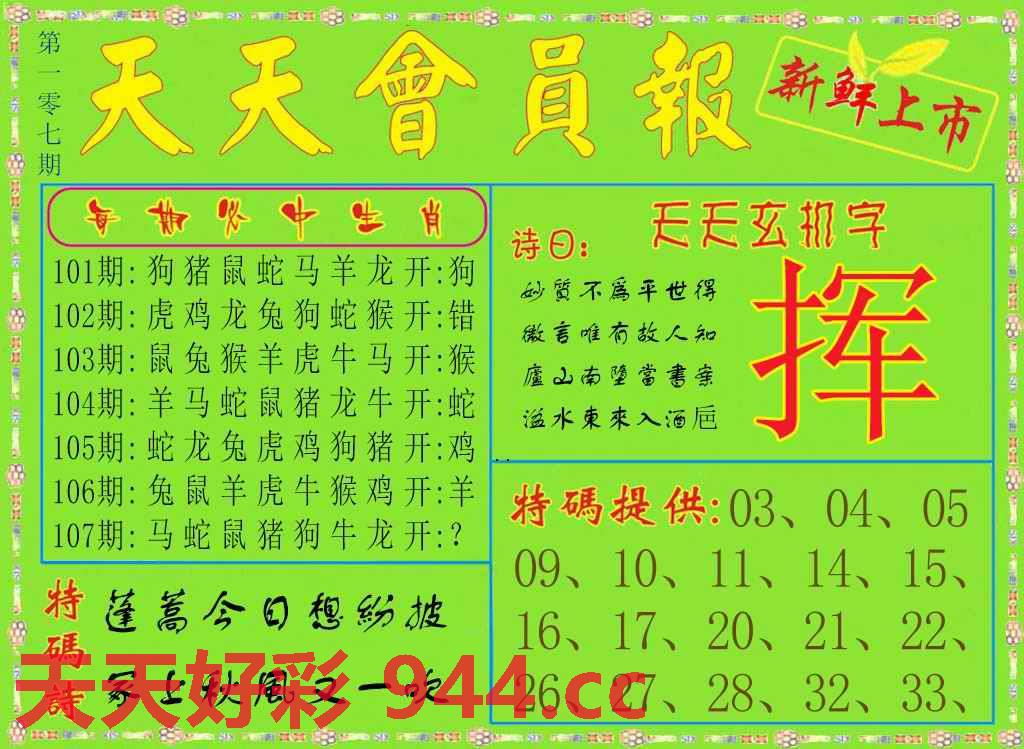 第一零七期
天天會員報
新鲜上市
每期必中生肖
101期:狗猪鼠蛇马羊龙开:狗
102期:虎鸡龙兔狗蛇猴开:错
103期:鼠兔猴羊虎牛马开:猴
104期:羊马蛇鼠猪龙牛开:蛇
105期:蛇龙兔虎鸡狗猪开:鸡
106期:兔鼠羊虎牛猴鸡开:羊
107期:马蛇鼠猪狗牛龙开:?
天天玄机字
诗曰:
妙質不爲平世得
微言唯有故人知
廬山南墮當書案
湓水東來入酒巵
挥
特碼提供:03、04、05
09、10、11、14、15、
16、17、20、21、22、
26、27、28、32、33、
特碼詩
蓬蒿今日想紛披
冢上秋風又一吹
天天好彩 944.cc